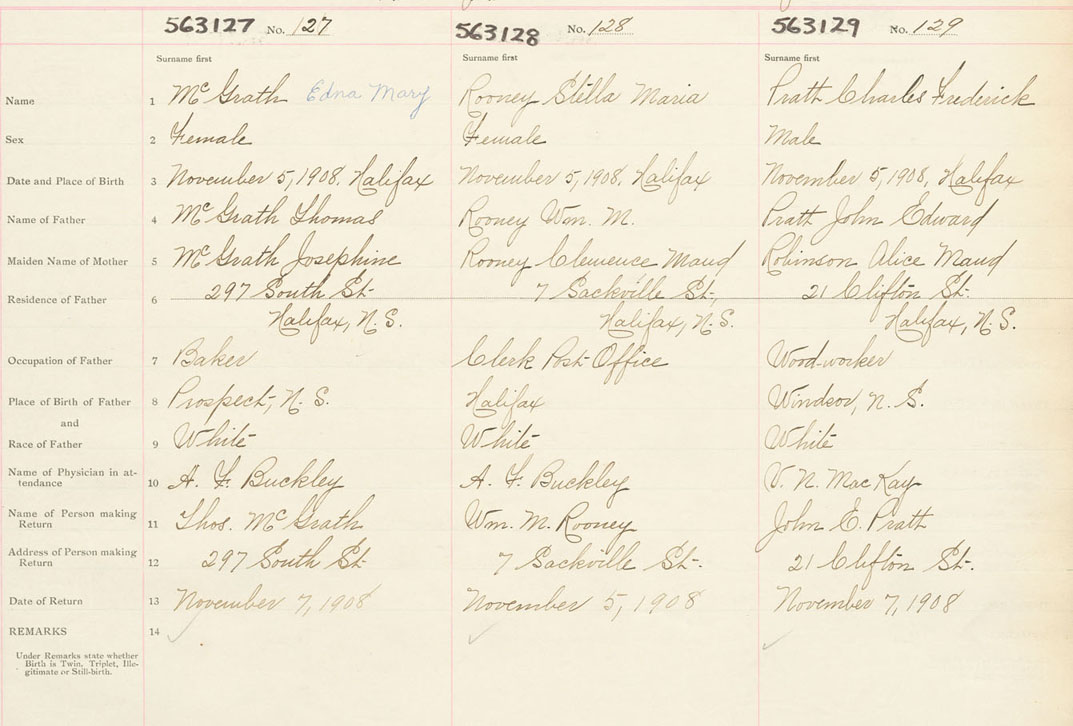 563127 No. 127 563128 No. 128 563129 No. 129
Surname first Surname first Surname first
Name 1 McGrath Edna Mary Rooney Stella Maria Pratt Charles Frederick
Sex 2 Female Female Male
Date and Place of Birth 3 November 5, 1908, Halifax November 5, 1908, Halifax November 5, 1908, Halifax
Name of Father 4 McGrath Thomas Rooney Wm. M. Pratt John Edward
Maiden Name of Mother 5 McGrath Josephine Rooney Clemence Maud Robinson Alice Maud
Residence of Father 6 297 South St. 7 Sackville St., 21 Clifton St.
Halifax, N.S. Halifax, N.S. Halifax, N.S.
Occupation of Father 7 Baker Clerk Post Office Wood-worker
Place of Birth of Father 8 Prospect, N.S. Halifax Windsor, N.S.
and
Race of Father 9 White White White
Name of Physician in at-
tendance 10 A. F. Buckley A. F. Buckley V. N. MacKay
Name of Person making
Return 11 Thos. McGrath Wm. M. Rooney John E. Pratt
Address of Person making
Return 12 297 South St. 7 Sackville St. 21 Clifton St.
Date of Return 13 November 7, 1908 November 5, 1908 November 7, 1908
REMARKS 14
Under Remarks state whether
Birth is Twin, Triplet, Ille-
gitimate or Still-birth.